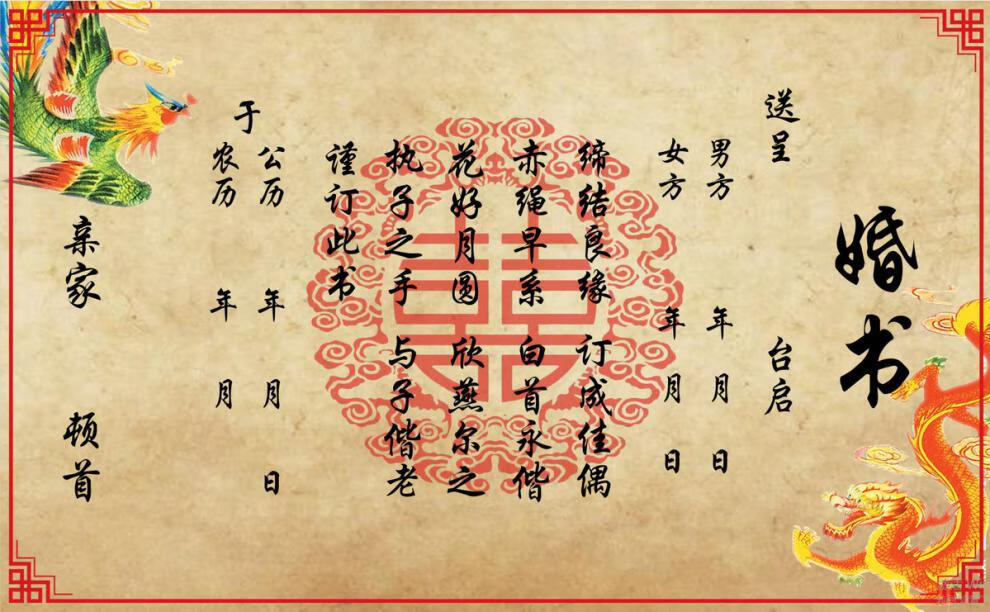 婚书
送呈 台启
男方 年 月 日
女方 年 月 日
缔结良缘 订成佳偶
赤绳早系 白首永偕
花好月圆 欣燕尔之
执子之手 与子偕老
谨订此书
于
公历 年 月 日
农历 年 月
亲家 顿首